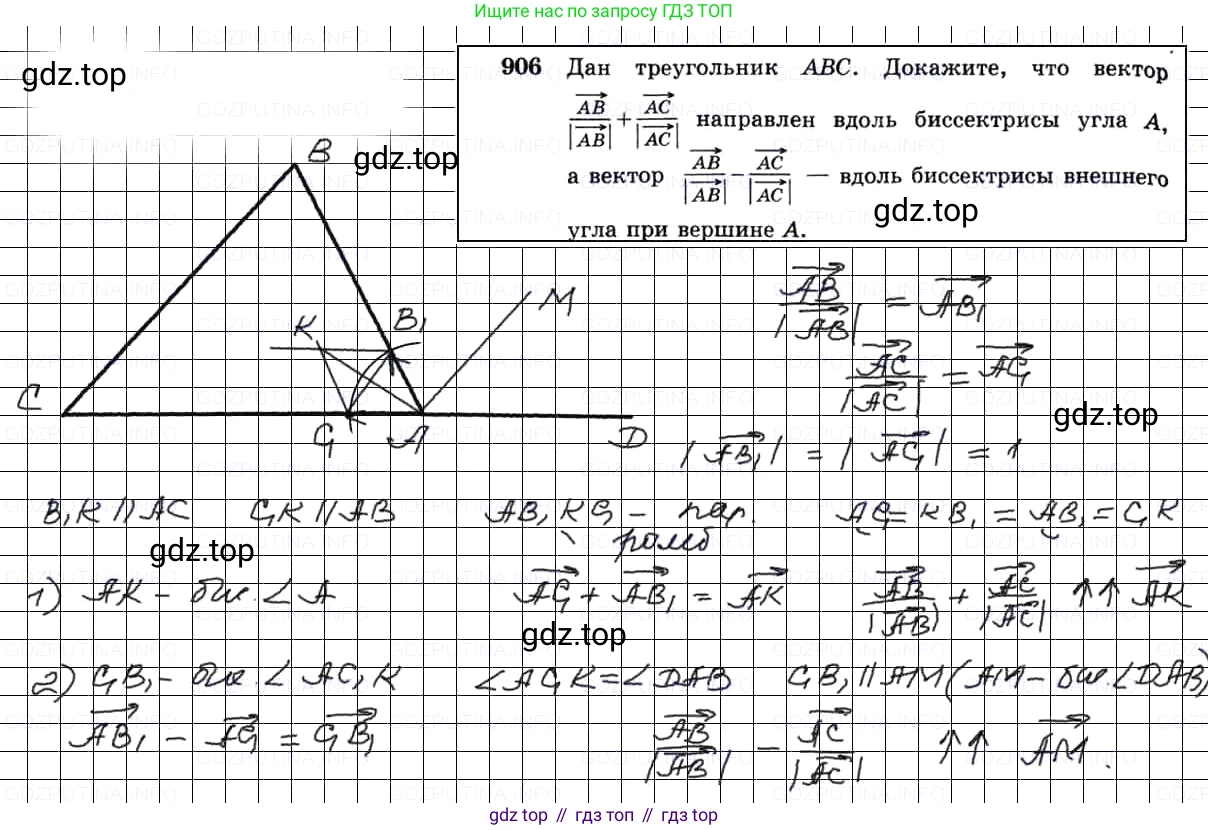 Ищите нас по запросу ГДЗ ТОП
GDZPUTINA.INFO
gdz.top
906 Дан треугольник ABC. Докажите, что вектор
AB/|AB| + AC/|AC| направлен вдоль биссектрисы угла A,
а вектор AB/|AB| − AC/|AC| — вдоль биссектрисы внешнего
угла при вершине A.
gdz.top
gdz.top
B
K
B₁
M
C
C₁
A
D
AB/|AB| = AB₁
AC/|AC| = AC₁
gdz.top
|AB₁| = |AC₁| = 1
B₁K || AC C₁K || AB AB₁KC₁ – пар. AC₁ = KB₁ = AB₁ = C₁K
ромб
gdz.top
1) AK – бис. ∠A AC₁ + AB₁ = AK AB/|AB| + AC/|AC| ↑↑ AK
gdz.top
2) C₁B₁ – бис. ∠AC₁K ∠AC₁K = ∠DAB C₁B₁ || AM (AM – бис. ∠DAB)
AB₁ – AC₁ = C₁B₁ AB/|AB| – AC/|AC| ↑↑ AM.
gdz.top // гдз.топ // gdz.top